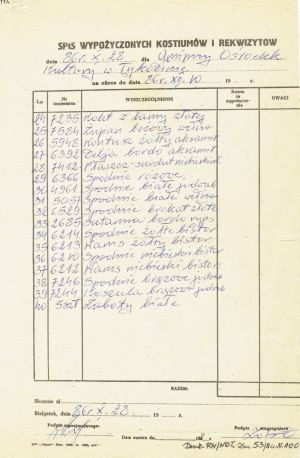 SPIS WYPOŻYCZONYCH KOSTIUMÓW I REKWIZYTÓW
dnia 86r. X. 23. dla Gminny Ośrodek
Kultury w Tykocinie
na okres do dnia 86r. XII. 10 19 r.
L.p. Nr inwentarza WYSZCZEGÓLNIENIE Kwota za wypożyczenie UWAGI
24 7235 Kolet z lamy złoty
25 7584 Żupan beżowy
26 5948 Kontusz żółty aksamit
27 6392 Delja bordo aksamit
28 7412 Płaszcz-surdut niebieski
29 6366 Spodnie różowe
30 4961 Spodnie białe jedwab
31 5057 Spodnie białe
32 6529 Spodnie brokat złote
33 2685 Sutanna bordo ryps
34 6214 Spodnie żółte bistor
35 6213 Kams żółty bistor
36 6210 Spodnie niebieskie bistor
37 6212 Kams niebieski bistor
38 7246 Spodnie brązowe
39 7244 Koszula brązowa
40 5szt Żaboty białe
RAZEM:
Słownie zł
Białystok, dnia 86r. X. 23. 19 r.
Podpis wypożyczającego
Podpis magazyniera
Data zwrotu do